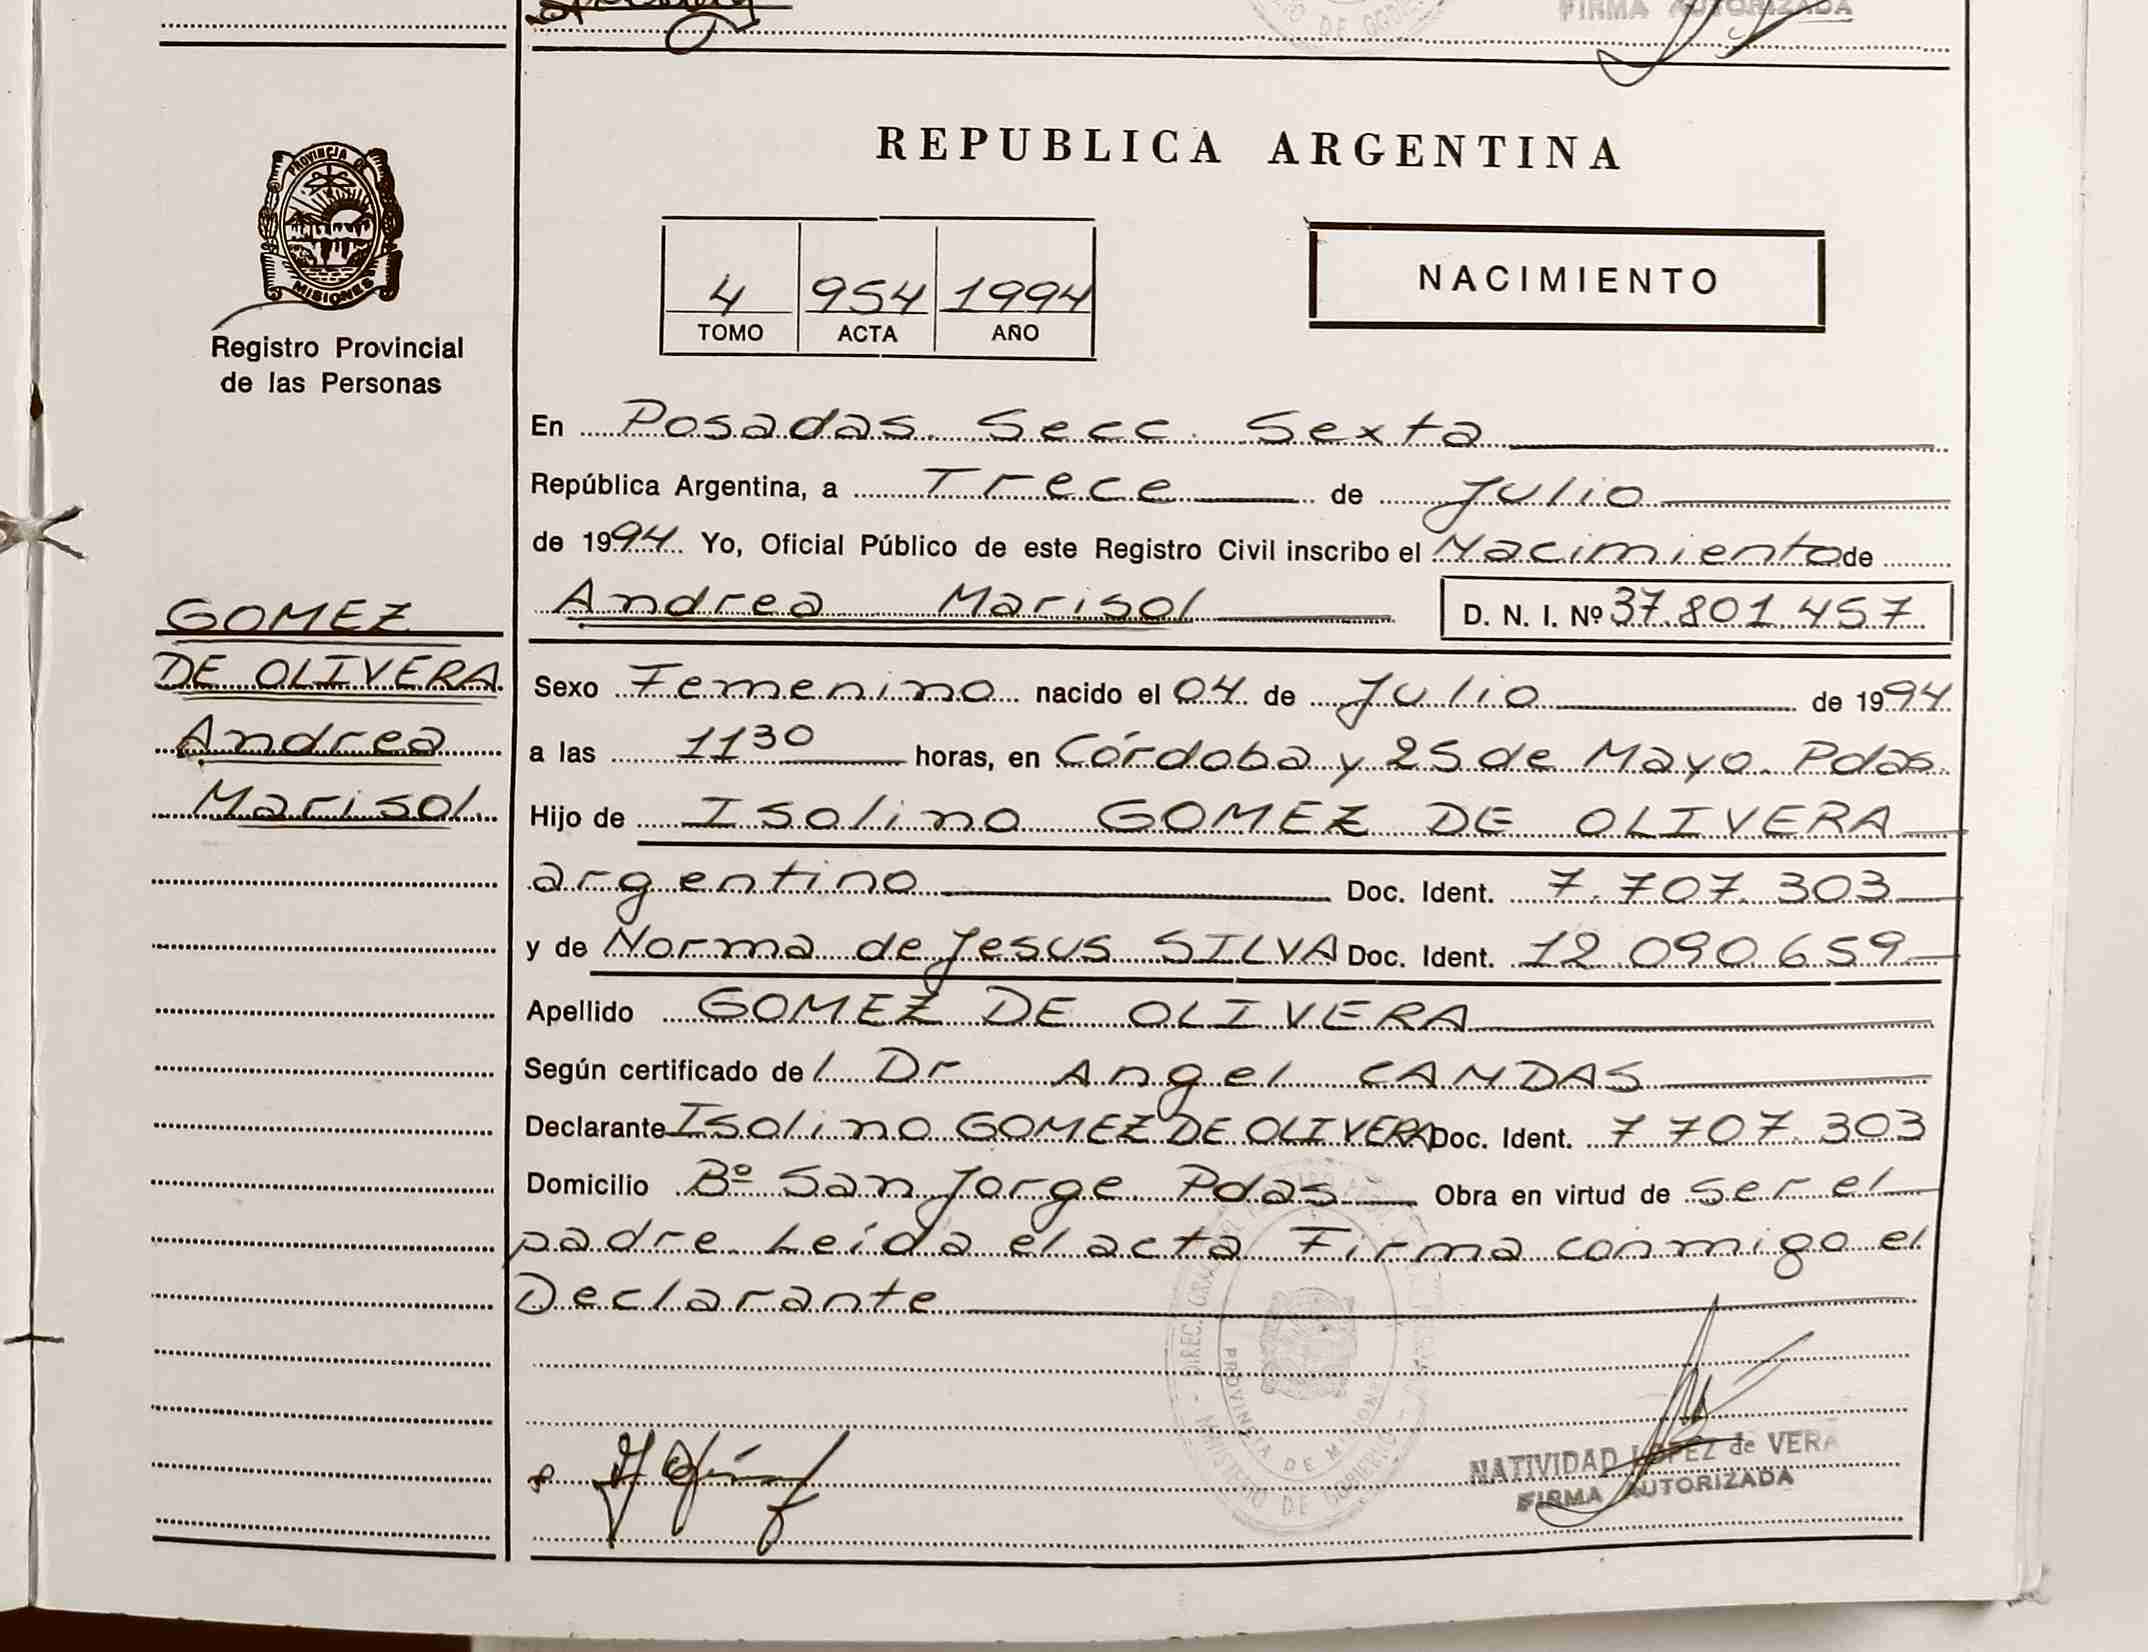 FIRMA AUTORIZADA
PROVINCIA DE
MISIONES
Registro Provincial
de las Personas
REPUBLICA ARGENTINA
4 954 1994
TOMO ACTA AÑO
NACIMIENTO
En Posadas. Secc. Sexta
República Argentina, a Trece de Julio
de 1994 Yo, Oficial Público de este Registro Civil inscribo el Nacimiento de
Andrea Marisol D. N. I. Nº 37.801.457
GOMEZ
DE OLIVERA
Andrea
Marisol.
Sexo Femenino nacido el 04 de Julio de 1994
a las 11 30 horas, en Córdoba y 25 de Mayo. Pdas.
Hijo de Isolino GOMEZ DE OLIVERA
argentino Doc. Ident. 7.707.303
y de Norma de Jesus SILVA Doc. Ident. 12.090.659
Apellido GOMEZ DE OLIVERA
Según certificado del Dr Angel CANDAS
Declarante Isolino GOMEZ DE OLIVERA Doc. Ident. 7.707.303
Domicilio Bº San Jorge Pdas Obra en virtud de ser el
padre. Leída el acta Firma conmigo el
Declarante
PROVINCIA DE MISIONES
MINISTERIO DE GOBIERNO
NATIVIDAD LOPEZ de VERA
FIRMA AUTORIZADA